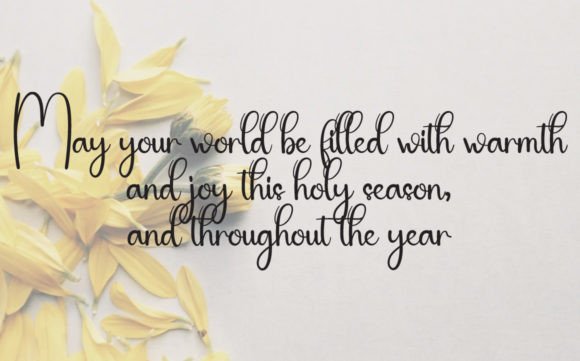 May your world be filled with warmth
and joy this holy season,
and throughout the year